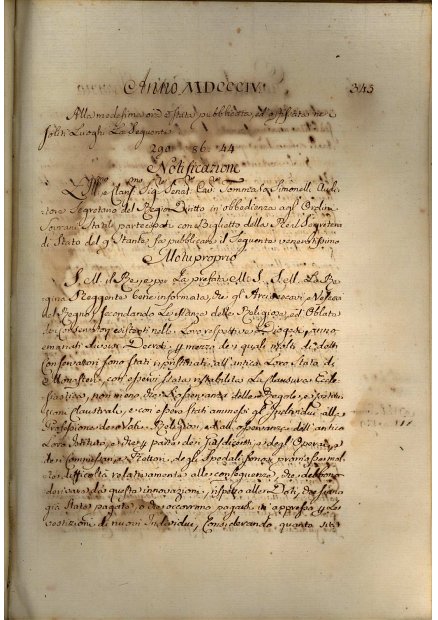 Anno MDCCCIV. 345
Alla medesima ore è stata pubblicata, ed affissata nei
soliti Luoghi La Seguente
290 86 44
Notificazione
Sig. Senat. Cav. Tommaso Simonelli Audi-
tore Segretario del Regio Diritto in obbedienza agl' Ordini
Sovrani Stati partecipati con Biglietto della R. Segreteria
di Stato del stante, fa pubblicare il Seguente veneratissimo
Motuproprio
S. M. il Re e per La prefata M. S. S. M. La Re-
gina Reggente bene informata, che gl' Arcivescovi, Vescovi
del Regno secondando Le Istanze delle Religiose, ed Oblate
dei Conservatori esistenti nelle Loro respettive Diogesi, anno
emanati diversi Decreti, mezzo de quali molti
Conservatori sono stati ripristinati all' antico Loro Stato di
Monastero, con essersi stata ristabilita La Clausura Eccle-
siastica, non meno che L'osservanza delle Regole, e Istitu-
zioni Claustrali, e con essersi stati ammessi gl' Individui alla
Professione dei Voti Religiosi, e all' osservanza dell' antico
Loro Istituto, e che parte dei Giusdicenti, e degl' Operai,
dei Commissari, e Rettori degli Spedali sono promosse mol-
te difficoltà relativamente alle conseguenze, che debbono
derivare da questa innovazione, rispetto alle Doti, che sieno
già State pagate, o che occorrino pagarsi in appresso Le
vestizioni di nuovi Individui, Considerando quanto sia